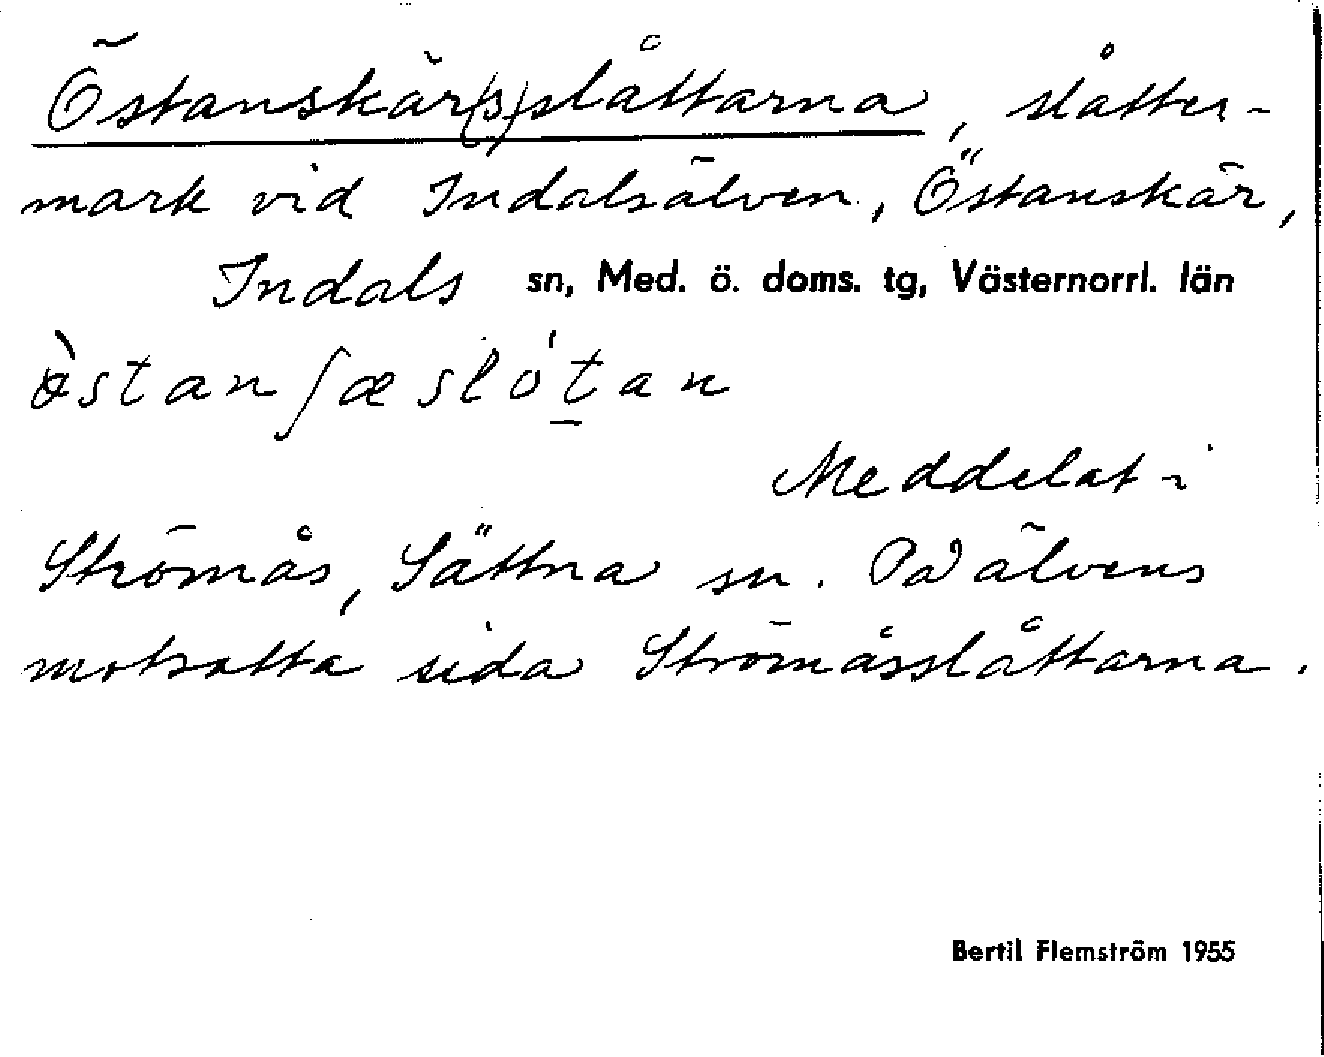 Östanskär(s)slåttarna, slåtter-
mark vid Indalsälven, Östanskär,
Indals sn, Med. ö. doms. tg, Västernorrl. län
ὰstanʃæslótan
Meddelat i
Strömås, Sättna sn. På älvens
motsatta sida Strömåsslåttarna.
Bertil Flemström 1955